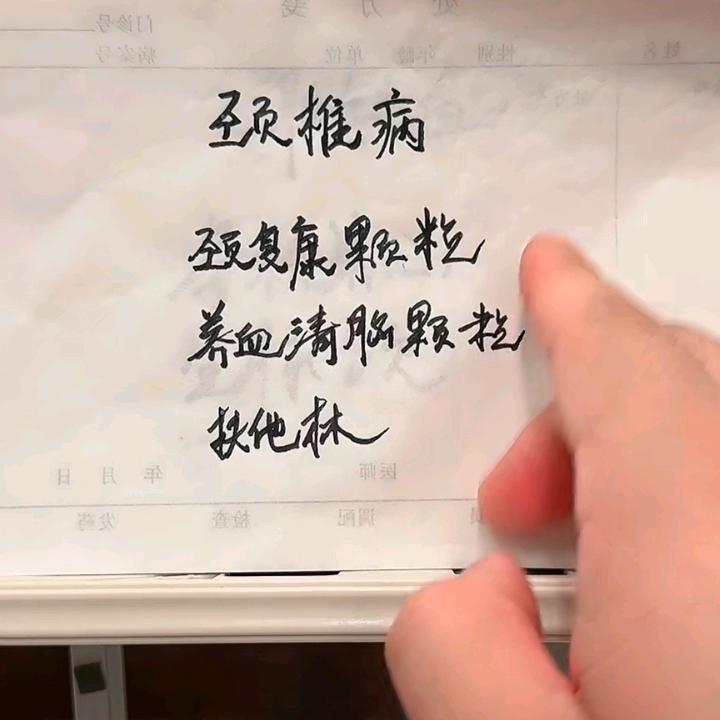 处方笺
门诊号
姓名 性别 年龄 单位 病案号
颈椎病
颈复康颗粒
养血清脑颗粒
扶他林
医师 年 月 日
调配 检查 发药